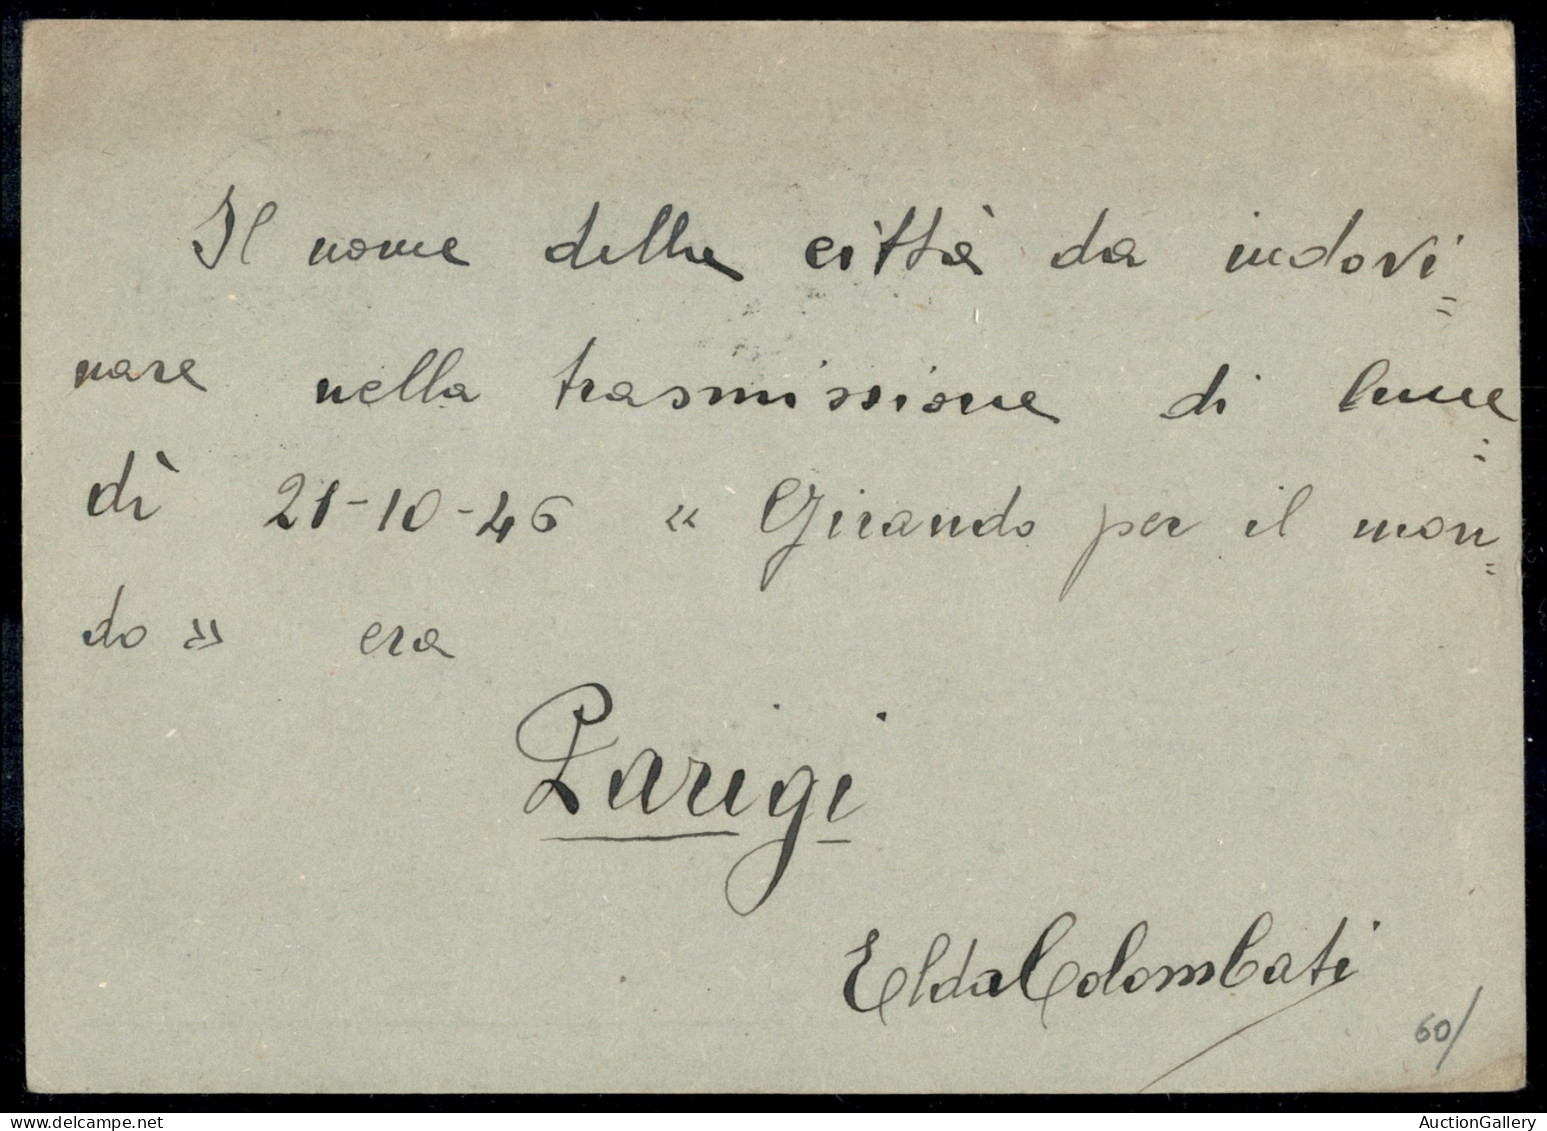 Il nome della città da indovi=
nare nella trasmissione di lune=
dì 21-10-46 « Girando per il mon=
do » era
Parigi
Elda Colombati
60/
AuctionGallery